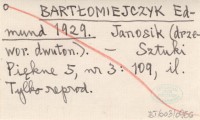 BARTŁOMIEJCZYK Ed-
mund 1929. Janosik (drze-
wor. dwuton.). — Sztuki
Piękne 5, nr 3: 109, il.
Tylko reprod.